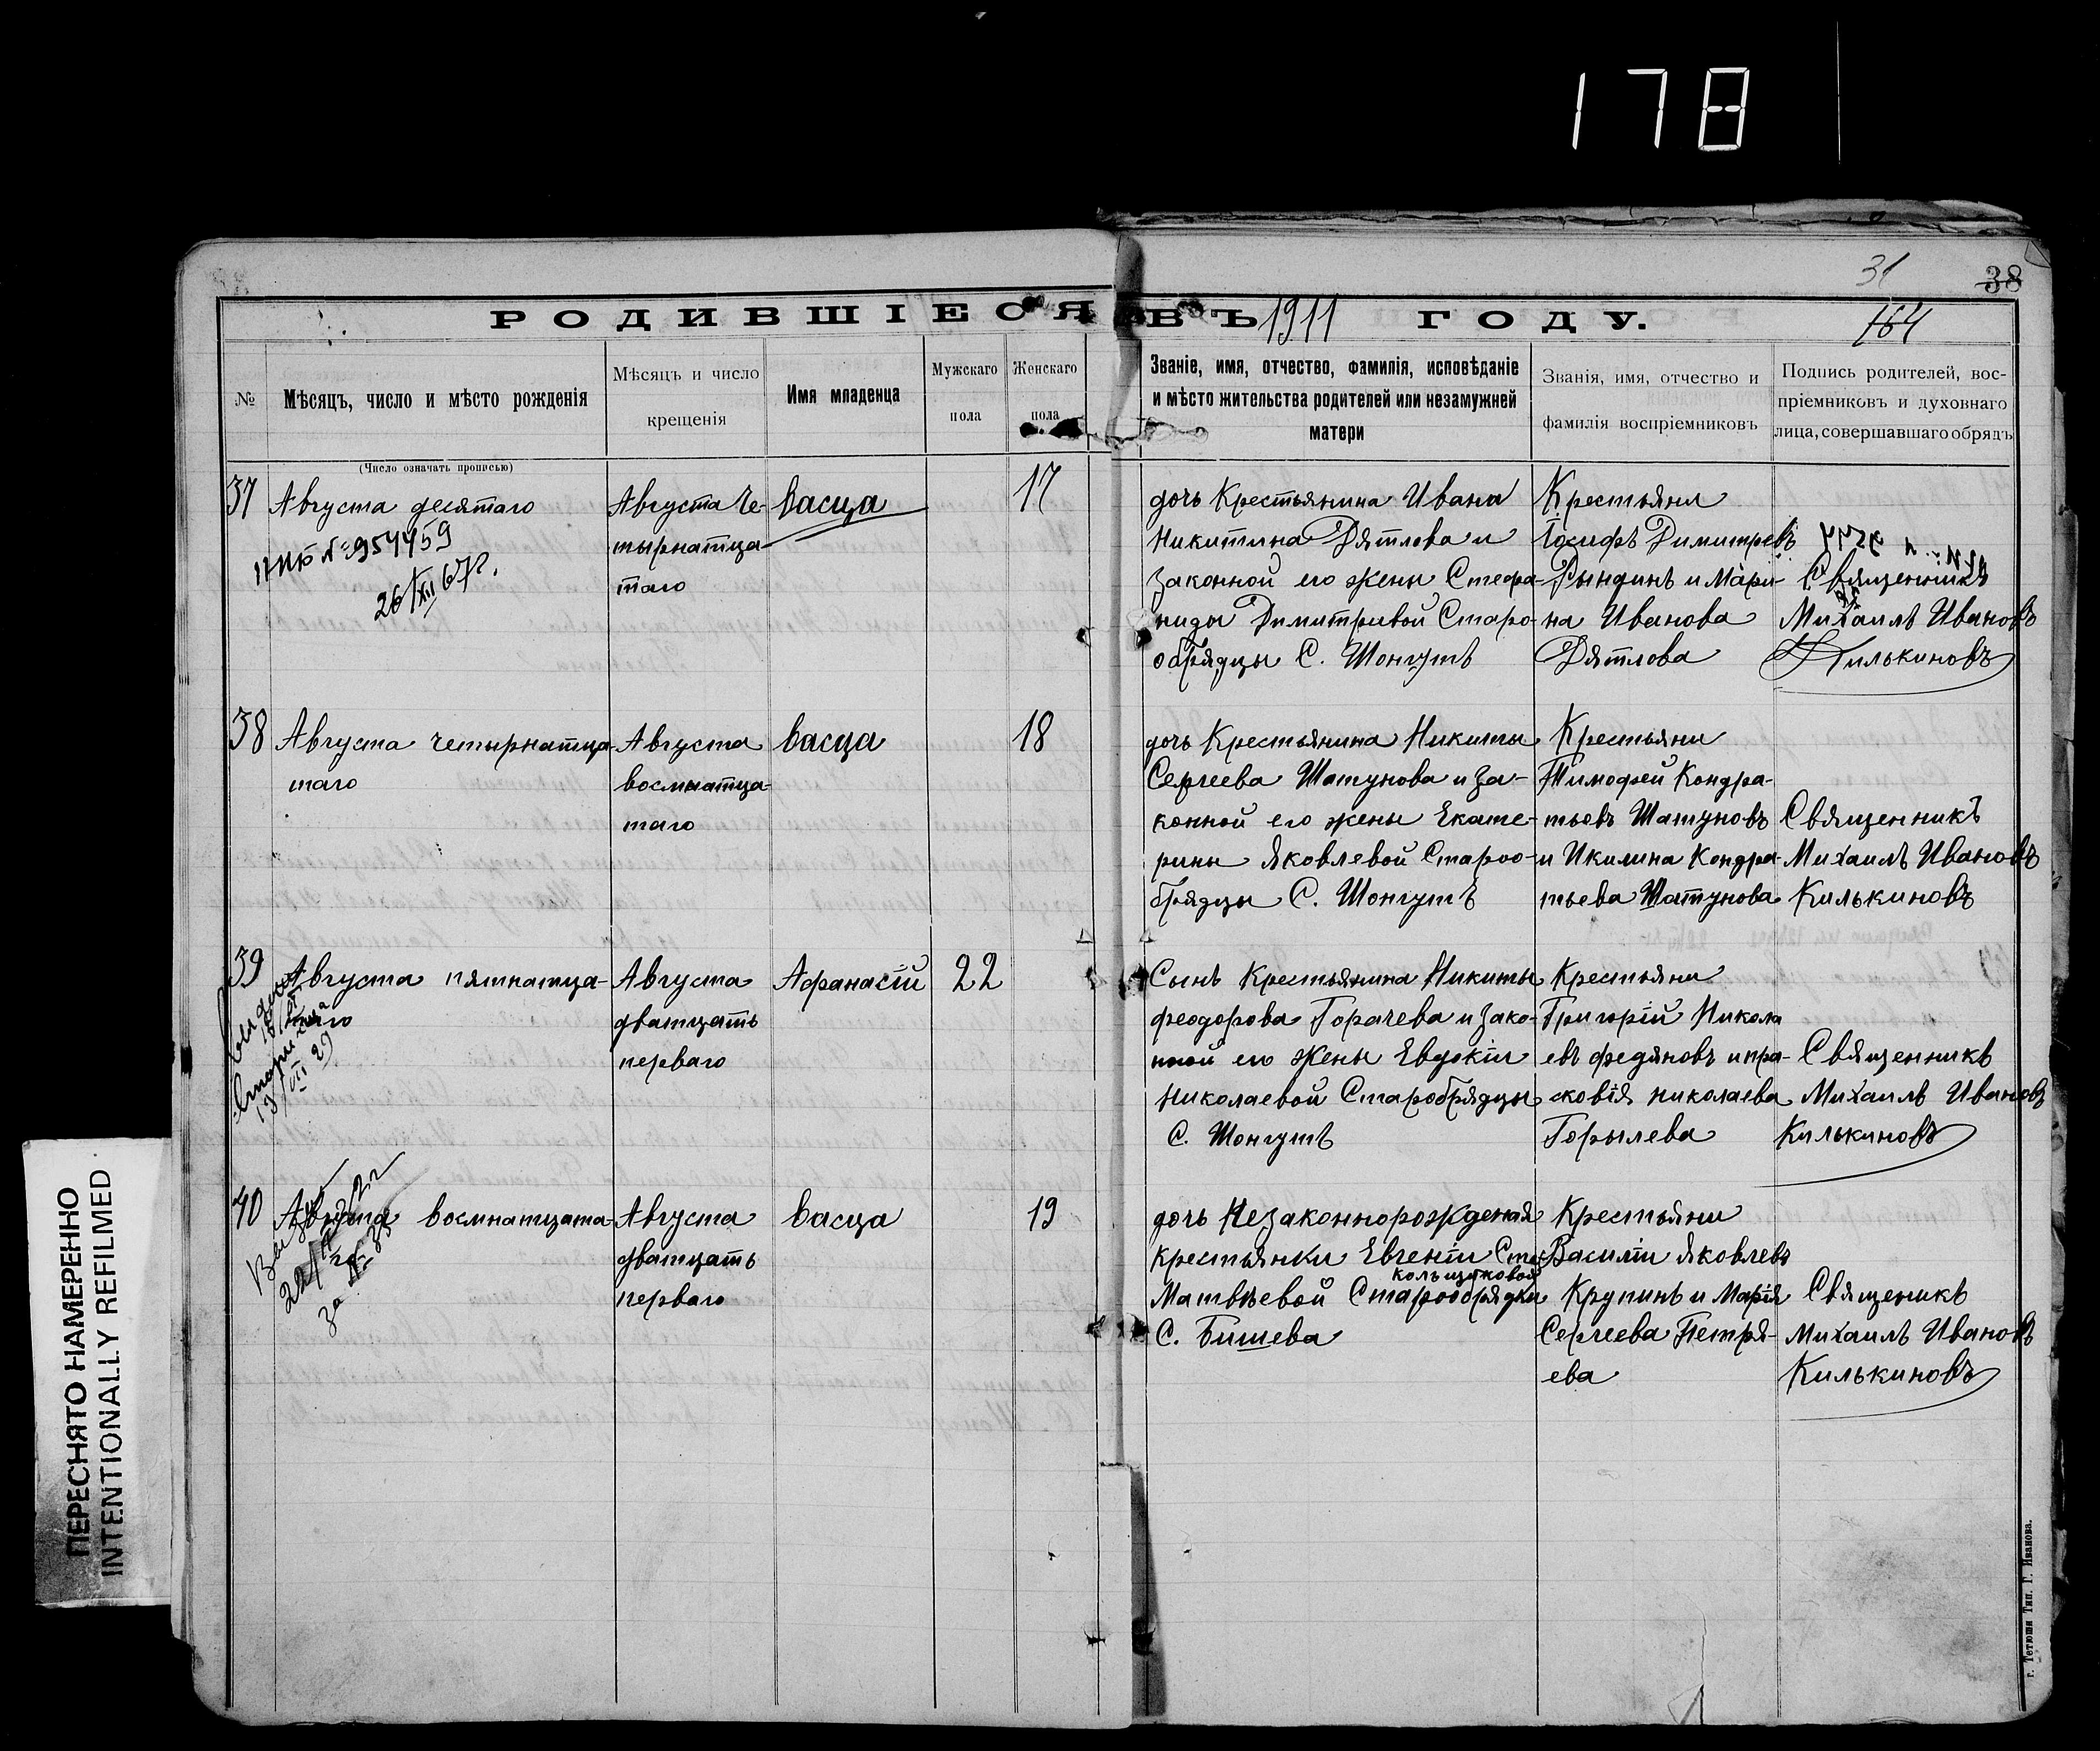 178
31
38
РОДИВШІЕСЯ ВЪ 1911 ГОДУ.
164
№
Мѣсяцъ, число и мѣсто рожденія
(Число означать прописью)
Мѣсяцъ и число
крещенія
Имя младенца
Мужскаго
пола
Женскаго
пола
Званіе, имя, отчество, фамилія, исповѣданіе
и мѣсто жительства родителей или незамужней
матери
Званія, имя, отчество и
фамилія воспріемниковъ
Подпись родителей, вос-
пріемниковъ и духовнаго
лица, совершавшаго обрядъ
37
Августа десятаго
№ 954459
26/XII 67г.
Августа че-
тырнатца
таго
Васца
17
дочь Крестьянина Ивана
Никитина Дятлова и
законной его жены Стефа-
ниды Димитривой Старо-
обрядцы С. Шонгутѣ
Крестьяни
Іосифъ Димитревъ
Рындинъ и Мари-
на Иванова
Дятлова
Священникъ
Михаилъ Ивановъ
Килькиновъ
38
Августа четырнатца-
таго
Августа
восмнатца-
таго
Васца
18
дочь Крестьянина Никиты
Сергеева Шатунова и за-
конной его жены Екате-
рины Яковлевой Староо-
брядцы С. Шонгутѣ
Крестьяни
Тимофей Кондра-
тьевъ Шатуновъ
и Икилина Кондра-
тьева Шатунова
Священникъ
Михаилъ Ивановъ
Килькиновъ
39
Августа пятнатца-
таго
Августа
дватцать
перваго
Афанасій
22
Сынъ Крестьянина Никиты
Феодорова Горачева и зако-
ной его жены Евдокіи
Николаевой Старобрядцы
С. Шонгутѣ
Крестьяни
Григорій Никола
евъ Федяновъ и пра-
сковія николаева
Горылева
Священникъ
Михаилъ Ивановъ
Килькиновъ
40
Августа восмнатцата
Августа
дватцать
перваго
Васца
19
дочь Незаконнорожденая
крестьянки Евгеніи
Кольцуковой
Матвѣевой Старообрядки
С. Бишева
Крестьяни
Василіи Яковлевъ
Крупинъ и Марія
Сергеева Петря-
ева
Священикъ
Михаилъ Ивановъ
Килькиновъ
ПЕРЕСНЯТО НАМЕРЕННО
INTENTIONALLY REFILMED
г. Тетюши Тип. Г. Иванова.